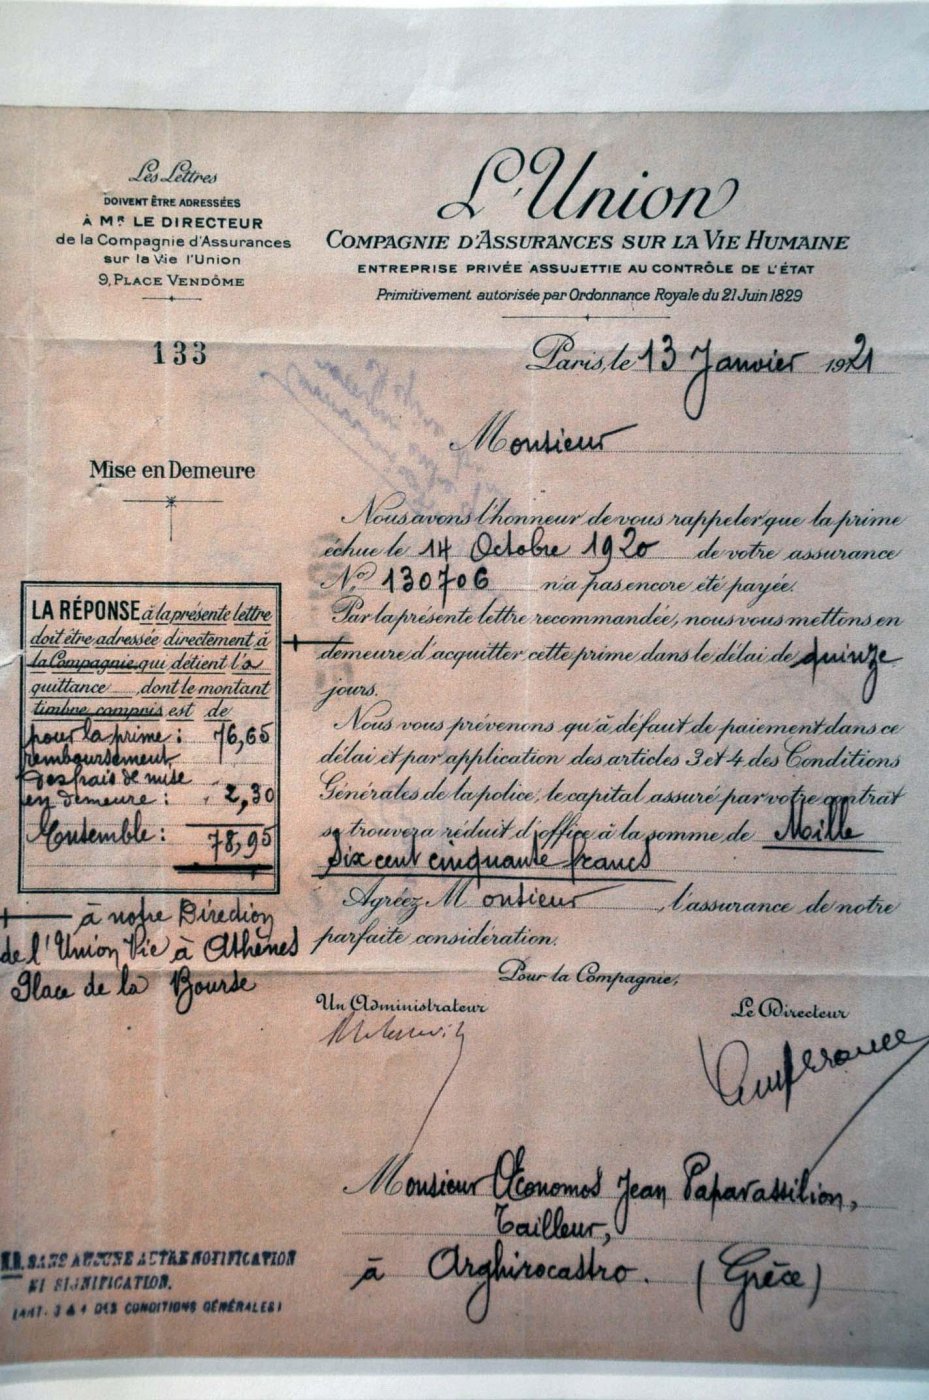 Les Lettres
DOIVENT ÊTRE ADRESSÉES
À MR LE DIRECTEUR
de la Compagnie d'Assurances
sur la Vie l'Union
9, PLACE VENDÔME
L'Union
COMPAGNIE D'ASSURANCES SUR LA VIE HUMAINE
ENTREPRISE PRIVÉE ASSUJETTIE AU CONTRÔLE DE L'ÉTAT
Primitivement autorisée par Ordonnance Royale du 21 Juin 1829
133
Paris, le 13 Janvier 1921
Monsieur
Mise en Demeure
Nous avons l'honneur de vous rappeler que la prime
échue le 14 Octobre 1920 de votre assurance
No 130706 n'a pas encore été payée.
Par la présente lettre recommandée, nous vous mettons en
demeure d'acquitter cette prime dans le délai de quinze
jours.
Nous vous prévenons qu'à défaut de paiement dans ce
délai et par application des articles 3 et 4 des Conditions
Générales de la police, le capital assuré par votre contrat
se trouvera réduit d'office à la somme de Mille
six cent cinquante francs
Agréez Monsieur, l'assurance de notre
parfaite considération.
LA RÉPONSE à la présente lettre
doit être adressée directement à
la Compagnie qui détient la
quittance dont le montant
timbre compris est de
pour la prime : 76,65
remboursement
des frais de mise
en demeure : 2,30
Ensemble : 78,95
à notre Direction
de l'Union Vie à Athènes
Place de la Bourse
Pour la Compagnie,
Un Administrateur
Le Directeur
Monsieur Œconomos Jean Paparassilion,
Tailleur,
à Arghirocastro. (Grèce)
N.B. SANS AUCUNE AUTRE NOTIFICATION
NI SIGNIFICATION.
(ART. 3 & 4 DES CONDITIONS GÉNÉRALES)